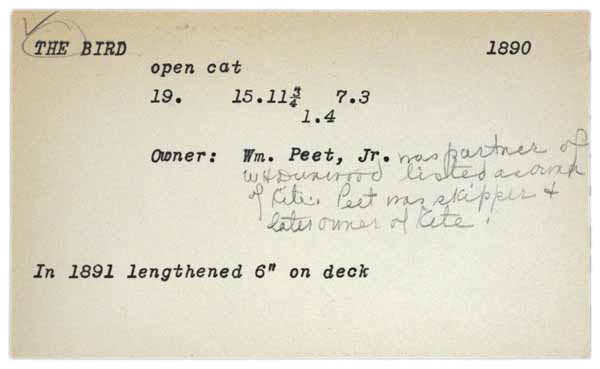 THE BIRD 1890
open cat
19. 15.11¾ 7.3
1.4
Owner: Wm. Peet, Jr. was partner of
W H Dunwood listed as own
of Kite. Peet was skipper &
later owner of Kete.
In 1891 lengthened 6" on deck